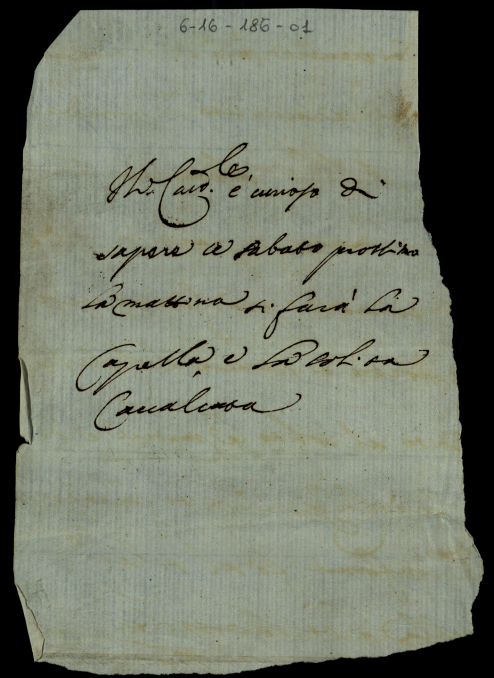 6-16-186-01
Il Card.le è curioso di
sapere se sabato prossimo
la mattina si farà la
Capella e la solita
Cavalcata